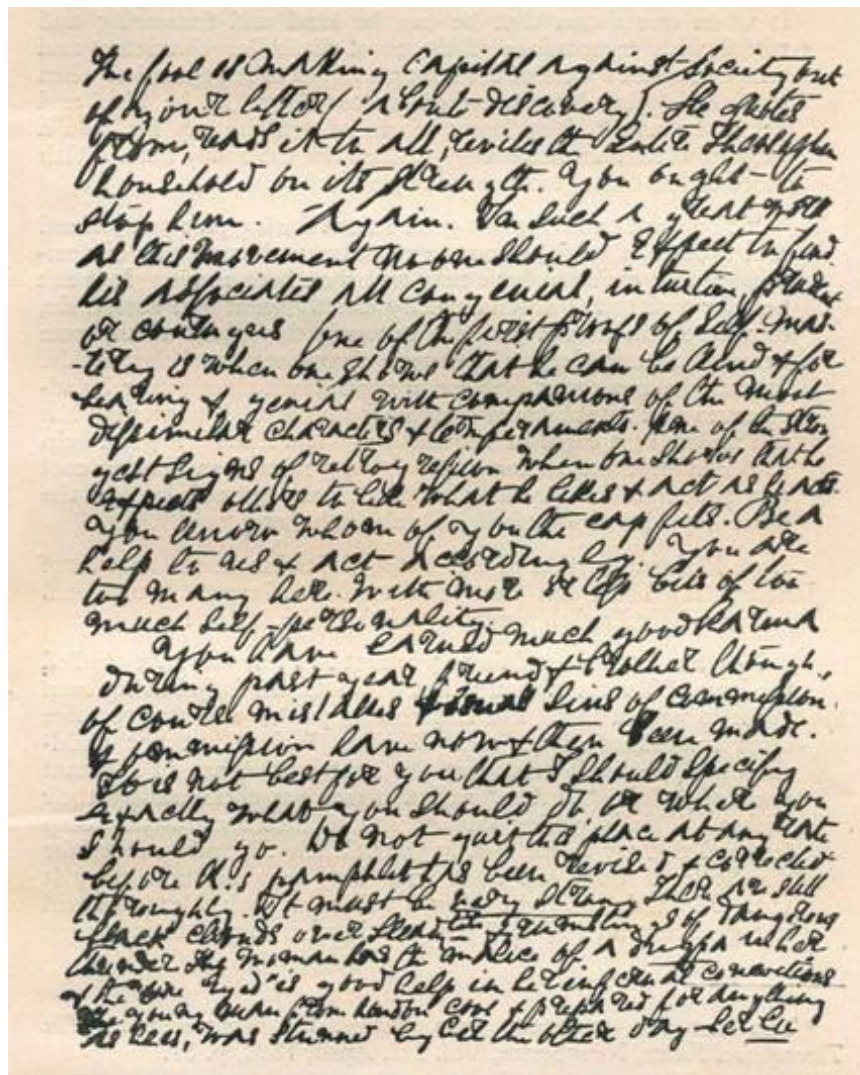 The fool is making capital against Society out
of your letter (about discovery). He quotes
from, reads it to all, reviles the entire
household on its strength. You ought to
stop him. Again. In such a great work
as this movement no one should expect to find
his associates all congenial, intuitive,
or courageous One of the first proofs of Self-mas-
-tery is when one shows that he can be kind & for
bearing & genial with companions of the most
dissimilar characters & temperaments. One of the stron
gest signs of retrogression when one shows that he
expects others to like what he likes & act as he acts.
You know whom of you the cap fits. Be a
help to us & act accordingly. You are
too many here with more or less bits of too
much self-personality.
You have earned much good Karma
during past year friend & brother though,
of course mistakes & usual sins of commission
& ommission have now & then been made.
It is not best for you that I should specify
exactly what you should do or where you
should go. Do not quit this place at any rate
before pamphlet has been revised & corrected
thoroughly. It must be very strong There are still
black clouds over & rumblings of dangerous
thunder The woman has the malice of a
& the "one eyed" is good help in her infernal concoctions
The young man from London cool & prepared for anything
as he is, was stunned by her the other day